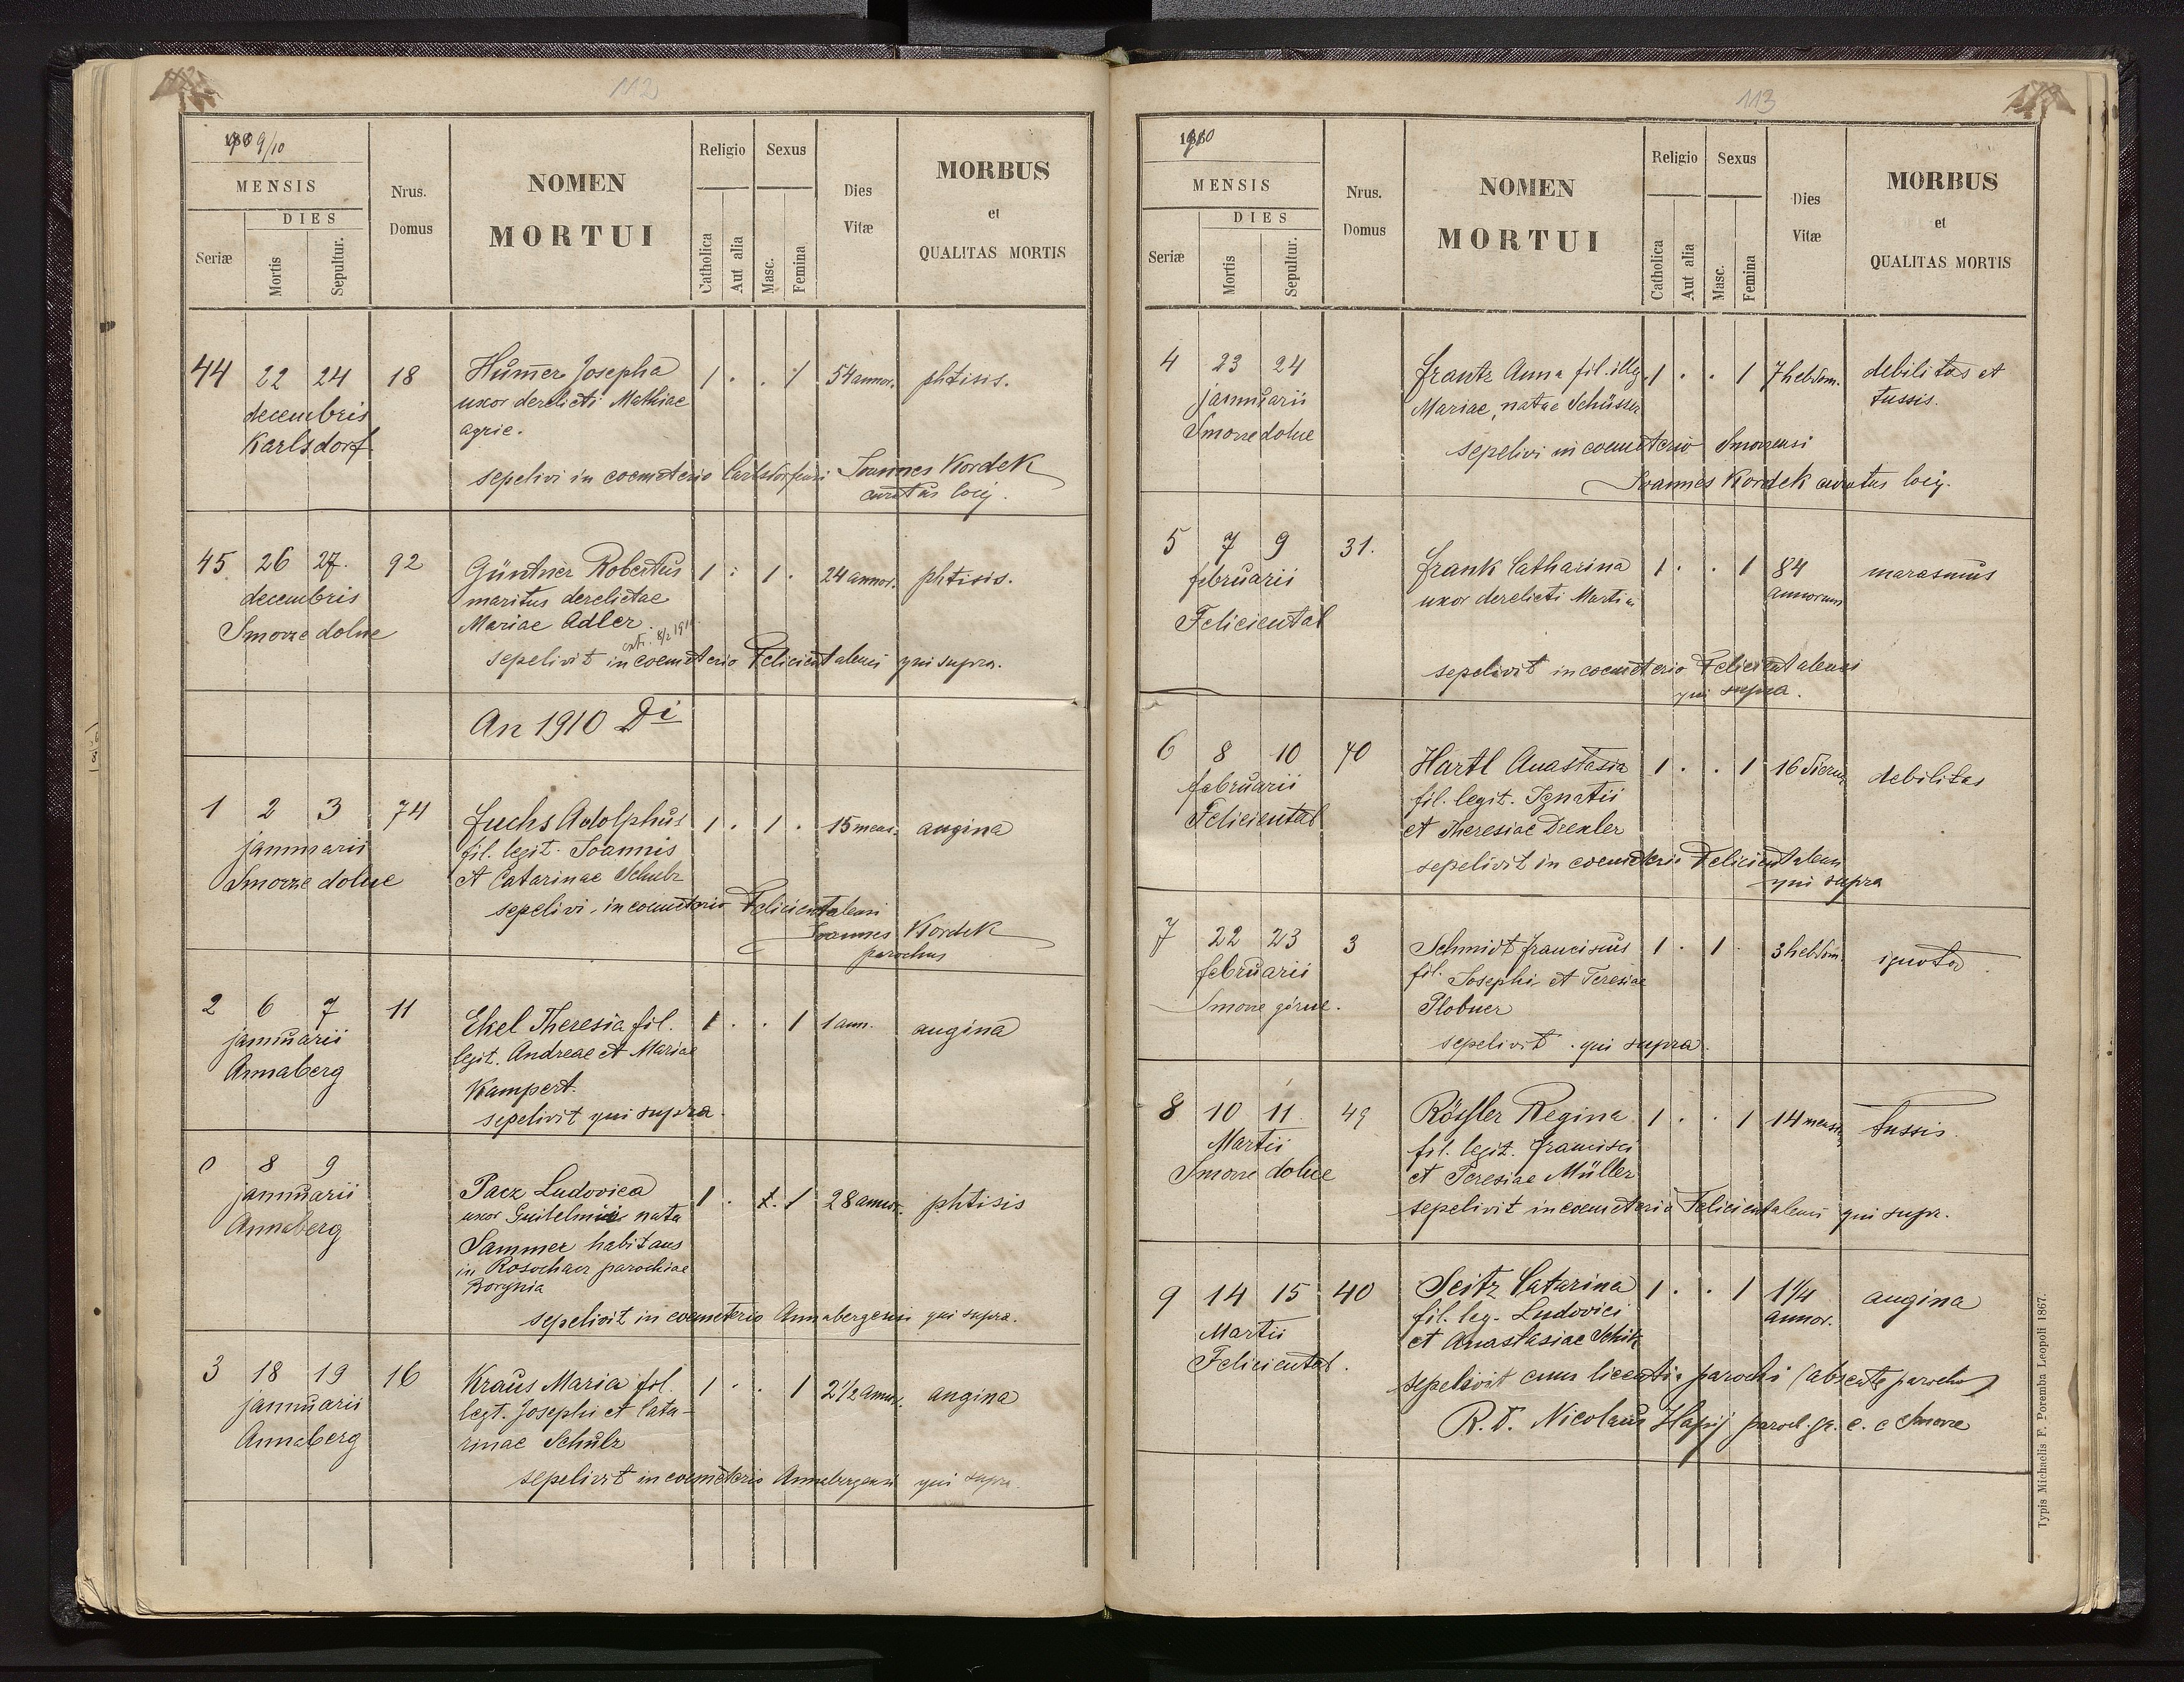 112
1909/10
MENSIS
DIES
Seriæ
Mortis
Sepultur.
Nrus.
Domus
NOMEN
MORTUI
Religio
Catholica
Aut alia
Sexus
Masc.
Femina
Dies
Vitæ
MORBUS
et
QUALITAS MORTIS
44 22 24 18 Hummer Josepha 1 . . 1 54 annor. phtisis.
decembris uxor derelicti Mathiae
Karlsdorf agric.
sepelivi in coemeterio Carlsdorfensi Joannes Kordek
curatus loci.
45 26 27. 92 Güntner Robertus 1 . 1 . 24 annor. phtisis.
decembris maritus derelictae
Smorze dolne Mariae Adler.
sepelivit in coemeterio Felicientalensi qui supra.
An 1910 Di
1 2 3 74 Fuchs Adolphus 1 . 1 . 15 mens. angina
januarii fil. legit. Joannis
Smorze dolne et Catarinae Schulz
sepelivi in coemeterio Felicientalensi
Joannes Kordek
parochus
2 6 7 11 Ekel Theresia fil. 1 . . 1 1 ann. angina
januarii legit. Andreae et Mariae
Annaberg Kampert.
sepelivit qui supra.
0 8 9 Pacz Ludovica 1 . 1 28 annor. phtisis
januarii uxor Guilelmi nata
Annaberg Sammer habitans
in Rosochacz parochiae
Borynia
sepelivit in coemeterio Annabergensi qui supra.
3 18 19 16 Kraus Maria fil. 1 . . 1 2 1/2 annor. angina
januarii legt. Josephi et Cata-
Annaberg rinae Schulz
sepelivit in coemeterio Annabergensi qui supra.
113
1910
MENSIS
DIES
Seriæ
Mortis
Sepultur.
Nrus.
Domus
NOMEN
MORTUI
Religio
Catholica
Aut alia
Sexus
Masc.
Femina
Dies
Vitæ
MORBUS
et
QUALITAS MORTIS
4 23 24 Frantz Anna fil. illeg. 1 . . 1 7 hebdom. debilitas et
januarii Mariae, natae Schüsser tussis.
Smorze dolne
sepelivi in coemeterio Smorzensi
Joannes Kordek curatus loci.
5 7 9 31. Frank Catharina 1 . . 1 84 marasmus
februarii uxor derelicti Martini annorum
Feliciental
sepelivit in coemeterio Felicientalensi
qui supra.
6 8 10 40 Hartl Anastasia 1 . . 1 16 dierum debilitas
februarii fil. legit. Ignatii
Feliciental et Theresiae Drexler
sepelivit in coemeterio Felicientalensi
qui supra
7 22 23 3 Schmidt Franciscus 1 . 1 . 3 hebdom. ignota
februarii fil. Josephi et Teresiae
Smorze górne. Plobner
sepelivit qui supra.
8 10 11 49 Rössler Regina 1 . . 1 14 mensium tussis.
Martii fil. legit. Francisci
Smorze dolne et Teresiae Müller
sepelivit in coemeterio Felicientalensi qui supr.
9 14 15 40 Seitz Catarina 1 . . 1 1 1/4 angina
Martii fil. leg. Ludovici annor.
Feliciental. et Anastasiae Schik
sepelivit cum licentia parochi (absente parocho)
R. D. Nicolaus Hapij paroch. gr. c. e Smorze
Typis Michaelis F. Poremba Leopoli 1867.